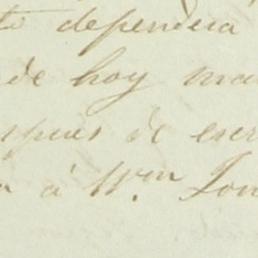 to dependera
de hoy ma
spues de escr
a á Wm. Jon